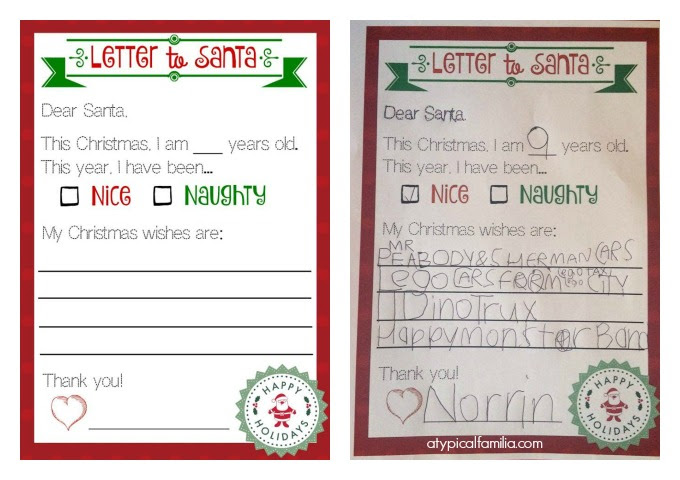 Letter to Santa
Dear Santa,
This Christmas, I am ___ years old.
This year, I have been...
Nice Naughty
My Christmas wishes are:
Thank you!
HAPPY HOLIDAYS
Letter to Santa
Dear Santa,
This Christmas, I am 9 years old.
This year, I have been...
Nice Naughty
My Christmas wishes are:
MR
PEABODY & SHERMAN CARS
LEGO CARS FORM CITY
DinoTrux
Happy monster Band
Thank you!
Norrin
HAPPY HOLIDAYS
atypicalfamilia.com